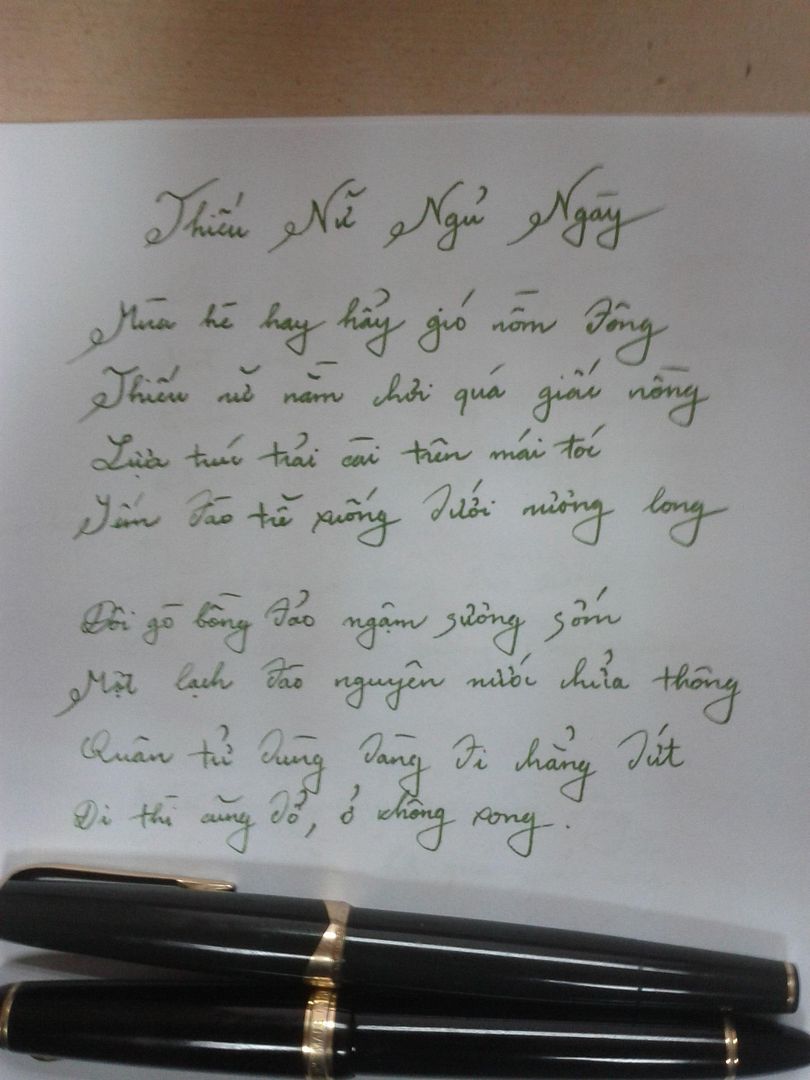 Thiếu Nữ Ngủ Ngày
Mùa hè hây hẩy gió nồm đông
Thiếu nữ nằm chơi quá giấc nồng
Lược trúc trải cài trên mái tóc
Yếm đào trễ xuống dưới nương long
Đôi gò bồng đảo ngậm sương sớm
Một lạch đào nguyên nước chửa thông
Quân tử dùng dằng đi chẳng dứt
Đi thì cũng dở, ở không xong.